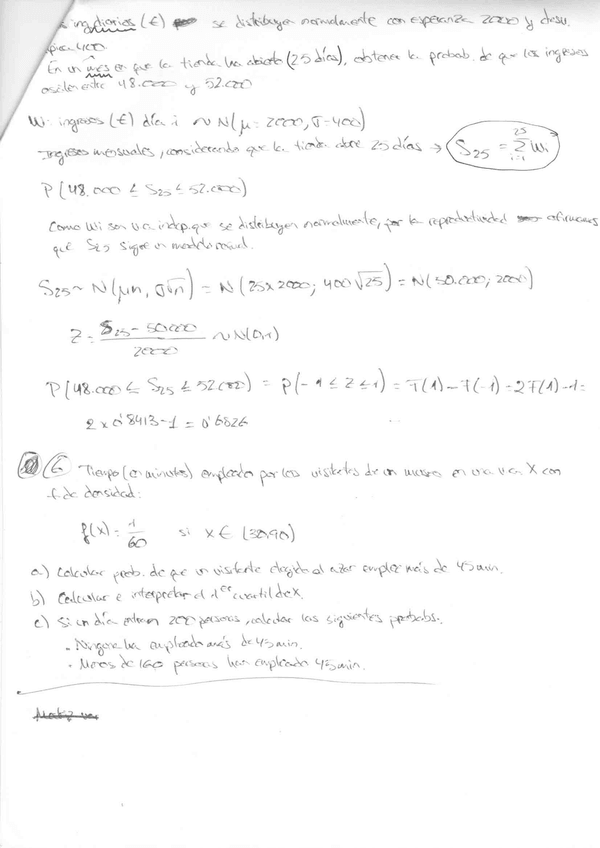 ing. diarios (€) se distribuyen normalmente con esperanza 2000 y desv.
típica 400
En un mes en que la tienda ha abierto (25 días), obtener la probab. de que los ingresos
oscilen entre 48.000 y 52.000
Wi: ingresos (€) día i ~ N(μ = 2000, σ = 400)
Ingresos mensuales, considerando que la tienda abre 25 días → S₂₅ = Σ Wi
25
i=1
P(48.000 ≤ S₂₅ ≤ 52.000)
Como Wi son v.a indep. que se distribuyen normalmente, por la reproductividad afirmamos
que S₂₅ sigue un modelo normal.
S₂₅ ~ N(μn, σ√n) = N(25x2000; 400√25) = N(50.000; 2000)
Z = (S₂₅ - 50.000) / 2000 ~ N(0,1)
P(48.000 ≤ S₂₅ ≤ 52.000) = P(-1 ≤ Z ≤ 1) = F(1) - F(-1) = 2F(1) - 1 =
2 x 0'8413 - 1 = 0'6826
6 Tiempo (en minutos) empleado por los visitantes de un museo en una v.a X con
f. de densidad:
f(x) = 1/60 si x ∈ (30,90)
a) Calcular prob. de que un visitante elegido al azar emplee más de 45 min.
b) Calcular e interpretar el 1er cuartil de X.
c) Si un día entran 200 personas, calcular las siguientes probabs.
· Ninguna ha empleado más de 45 min.
· Menos de 160 personas han empleado 45 min.